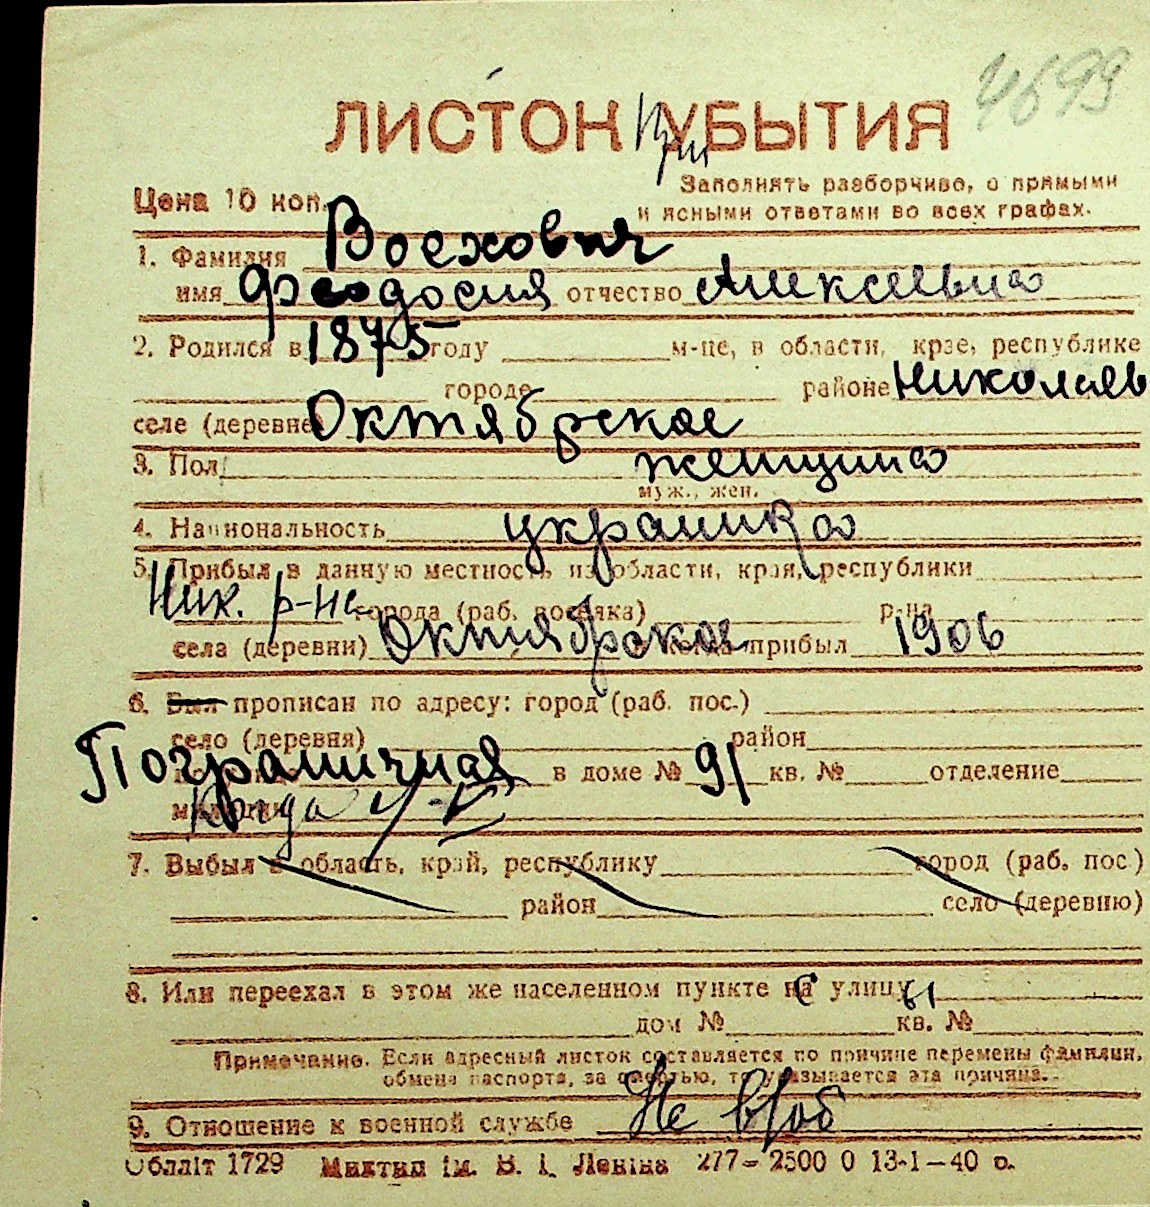 4699
ЛИСТОК При УБЫТИЯ
Заполнять разборчиво, с прямыми
Цена 10 коп. и ясными ответами во всех графах.
1. Фамилия
имя Феодосия отчество Алексеевна
2. Родился в 1875 году м-це, в области, крае, республике
городе районе Николаев
селе (деревне) Октябрское
3. Пол женщина
муж., жен.
4. Национальность украинка
5. Прибыл в данную местность из области, края, республики
Ник. р-на города (раб. поселка) р-на
села (деревни) Октябрское когда прибыл 1906
6. Был прописан по адресу: город (раб. пос.)
село (деревня) район
Пограничная в доме № 91 кв. № отделение
милиции
7. Выбыл в область, край, республику город (раб. пос.)
район село (деревню)
8. Или переехал в этом же населенном пункте на улицу
дом № кв. №
Примечание. Если адресный листок составляется по причине перемены фамилии,
обмена паспорта, за смертью, то указывается эта причина.
9. Отношение к военной службе Не в/об
Облліт 1729 Миктип ім. В. І. Леніна 277—2500 0 13-1—40 р.